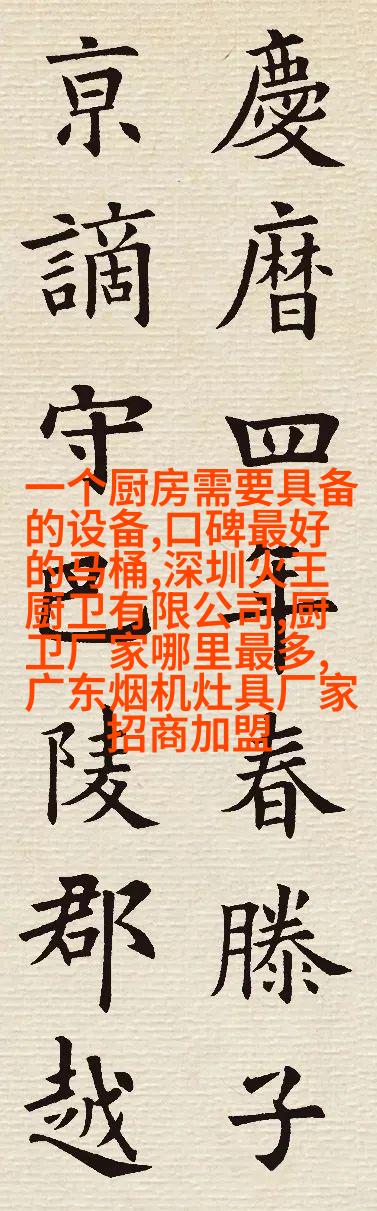 慶暦四年春滕子
亰謫守巴陵郡越
一个厨房需要具备
的设备,口碑最好
的马桶,深圳火王
厨卫有限公司,厨
卫厂家哪里最多,
广东烟机灶具厂家
招商加盟